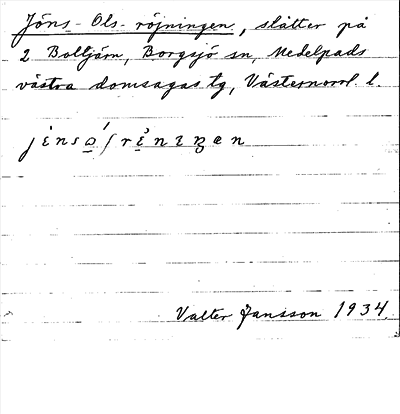 Jöns-Ols-röjningen, slåtter på
2 Bolltjärn, Borgsjö sn, Medelpads
västra domsagas tg, Västernorrl. l.
Valter Jansson 1934.